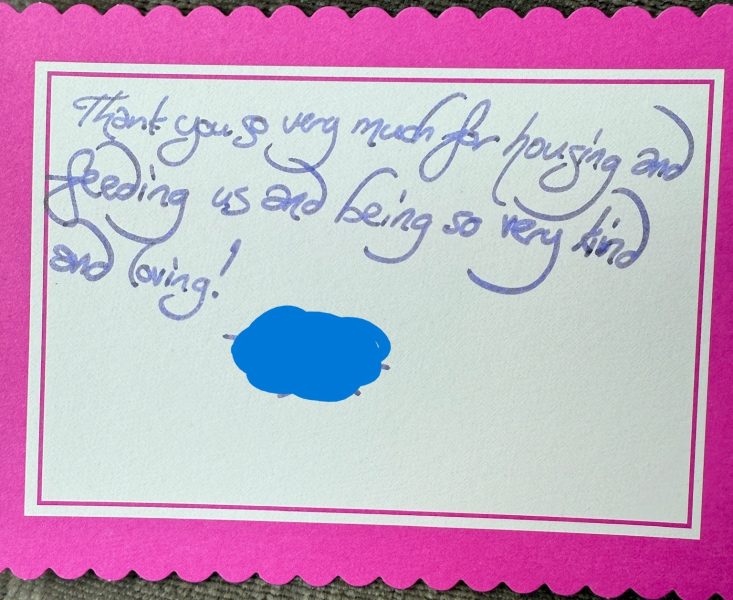 Thank you so very much for housing and
feeding us and being so very kind
and loving!